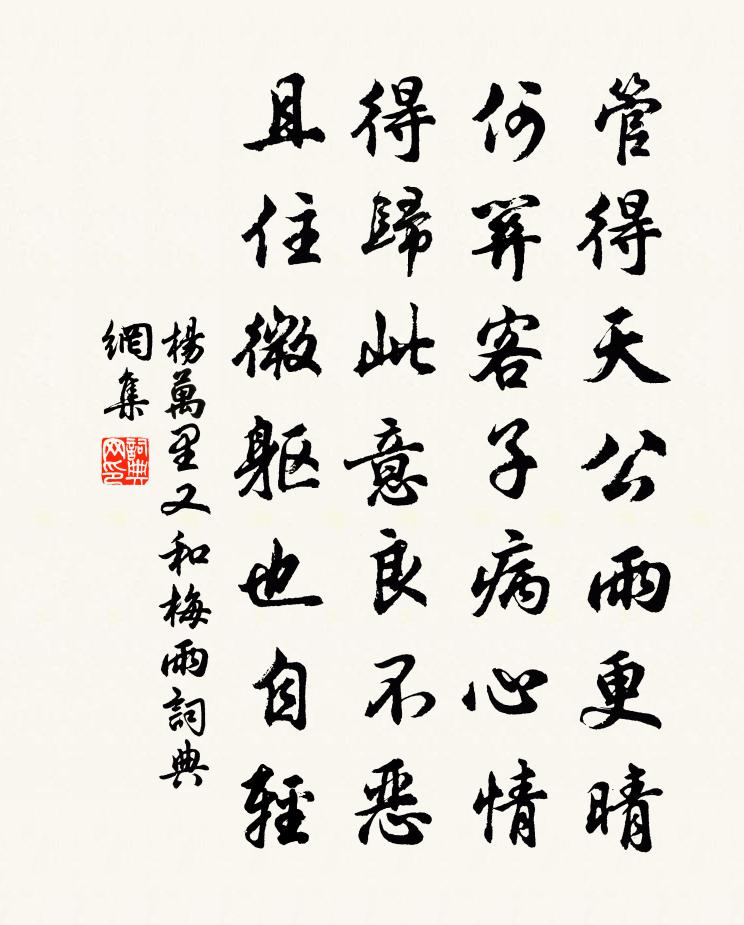 管得天公雨更晴
何關客子病心情
得歸此意良不惡
且住微軀也自輕
楊萬里又和梅雨詞典
網集
詞典
网印